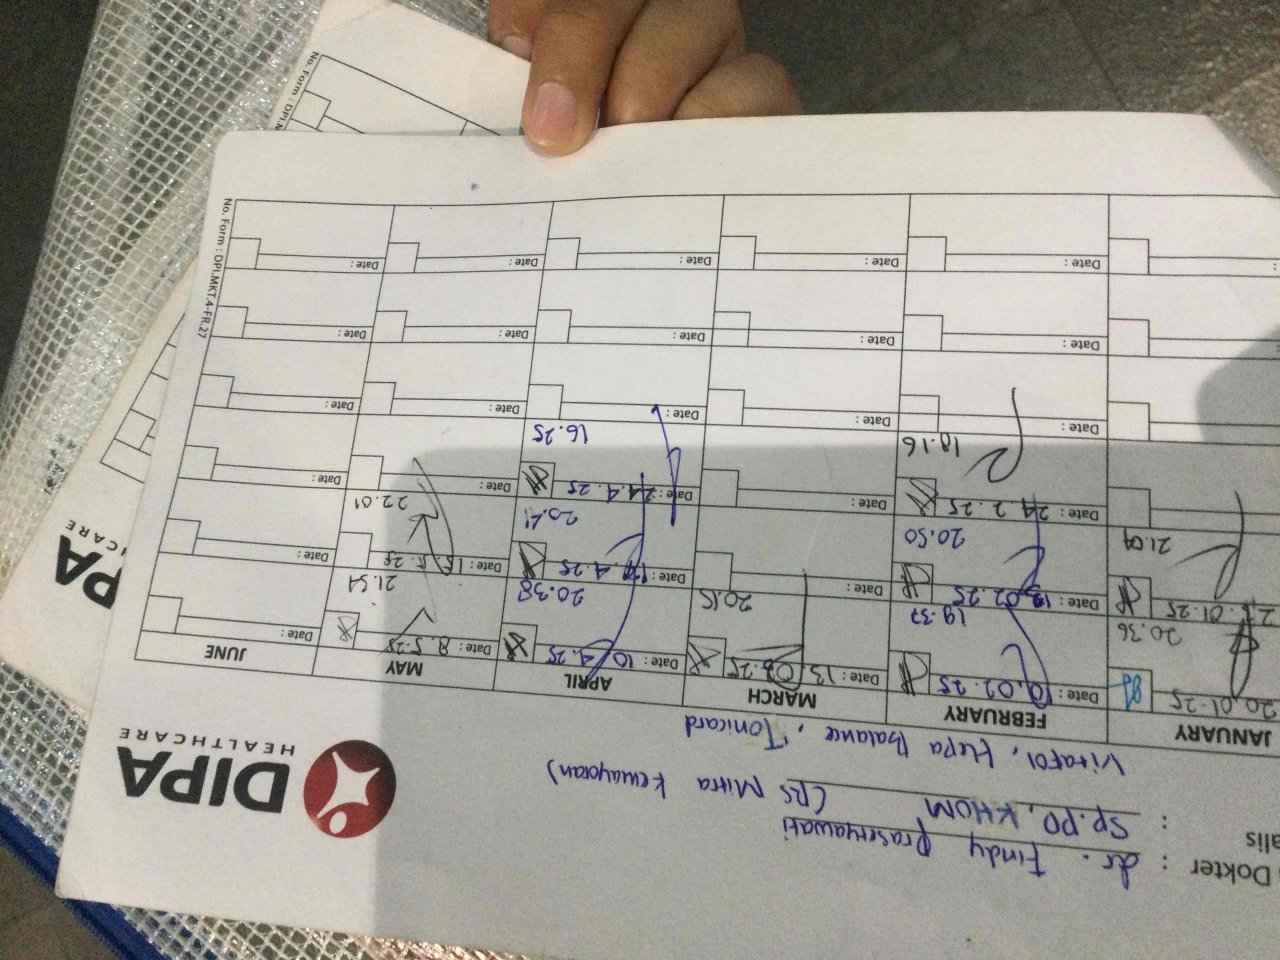 Dokter : dr. Findy Prasetyawati
alis : Sp.PD, KHOM (RS Mitra Kemayoran)
Vitafol, Hepa Balance, Tonicard
DIPA
HEALTHCARE
JANUARY FEBRUARY MARCH APRIL MAY JUNE
20.01.25 Date : 10.02.25 Date : 13.03.25 Date : 10.4.25 Date : 8.5.25 Date :
20.36 19.37 20.15 20.38 21.54
.01.25 Date : 02.25 Date : Date : .4.25 Date : 15.5.25 Date :
21.09 20.50 20.41 22.01
Date : 24.2.25 Date : Date : 24.4.25 Date : Date :
18.16 16.25
Date : Date : Date : Date : Date :
Date : Date : Date : Date : Date :
: Date : Date : Date : Date : Date :
No. Form : DPI.MKT.4-FR.27
No. Form : DPI.M
PA
HCARE